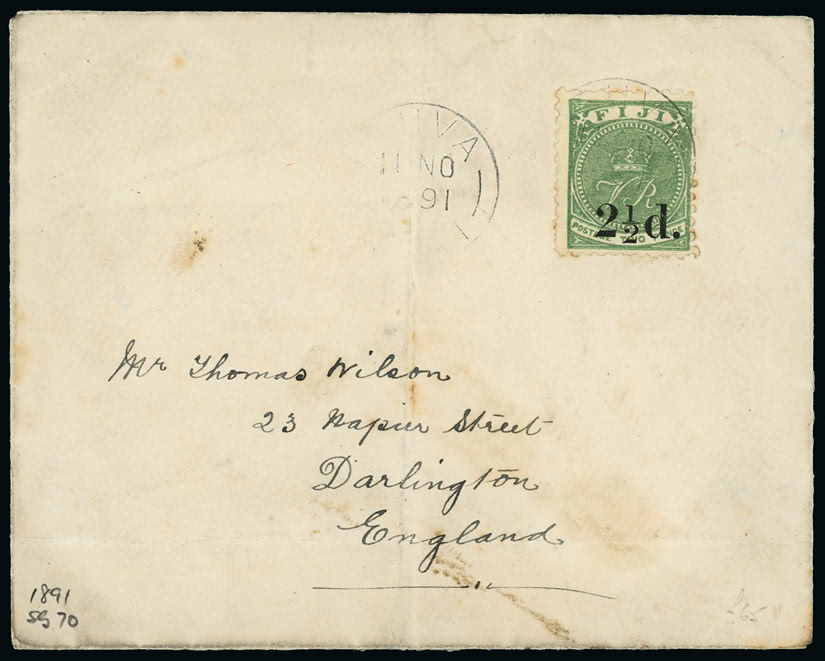 SUVA
11 NO
91
FIJI
VR
2½d.
POSTAGE TWO PENCE
Mr Thomas Wilson
23 Napier Street
Darlington
England
1891
SG 70